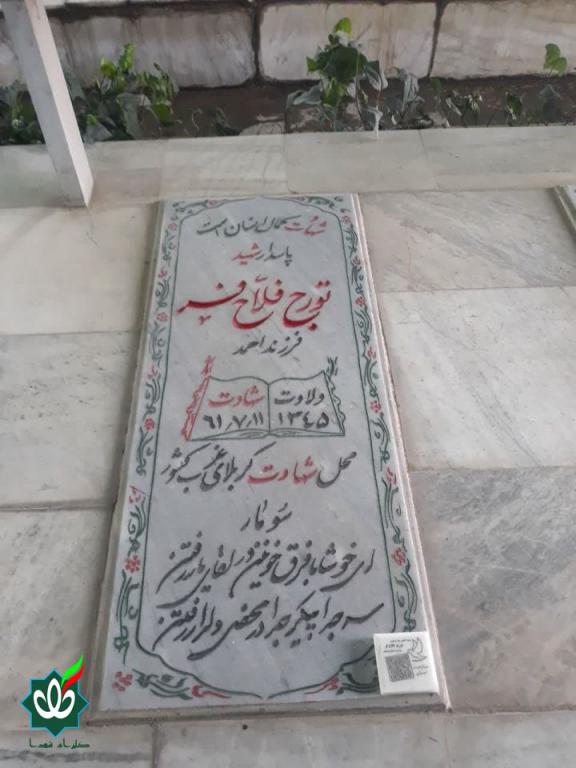 شهادت کمال انسان است
پاسدار رشید
تورج فلاح فر
فرزند احمد
ولادت
۱۳۴۵
شهادت
۶۱/۷/۱۱
محل شهادت کربلای غرب کشور
سومار
ای خوشا با فرق خونین در لقای یار رفتن
سر جدا پیکر جدا در محفل دلدار رفتن